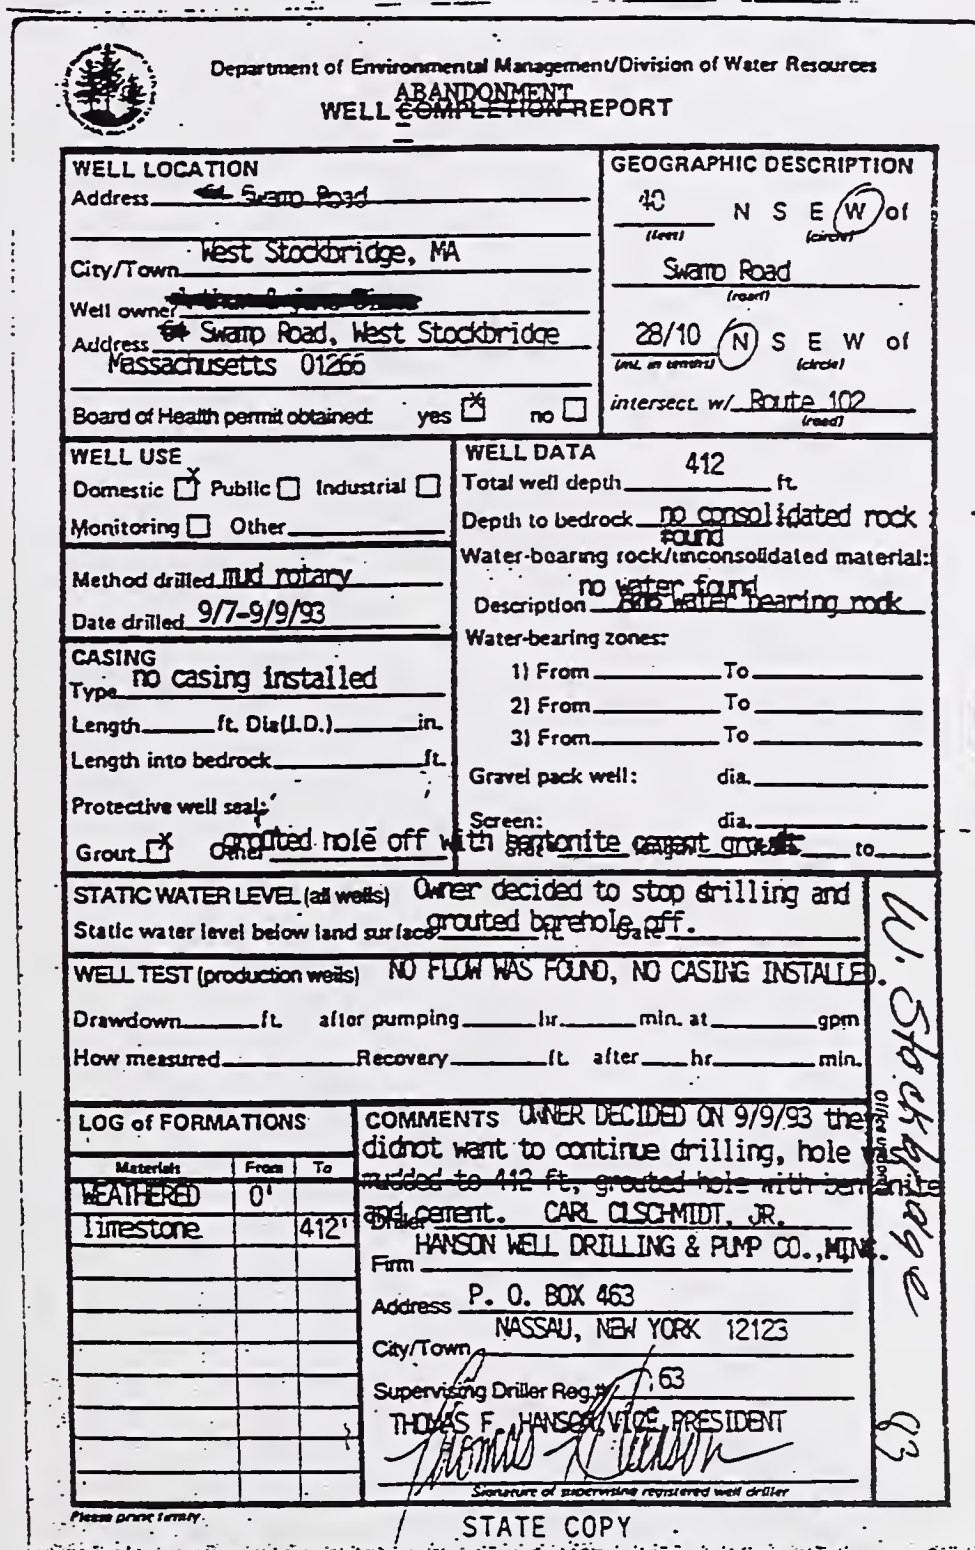 Department of Environmental Management/Division of Water Resources
ABANDONMENT
WELL COMPLETION REPORT
WELL LOCATION
Address Swamp Road
City/Town West Stockbridge, MA
Well owner
Address Swamp Road, West Stockbridge
Massachusetts 01266
Board of Health permit obtained: yes x no
GEOGRAPHIC DESCRIPTION
40 N S E W of
(feet) (circle)
Swamp Road
(road)
28/10 N S E W of
(mi. in tenths) (circle)
intersect. w/ Route 102
(road)
WELL USE
Domestic x Public Industrial
Monitoring Other
Method drilled mud rotary
Date drilled 9/7-9/9/93
CASING
Type no casing installed
Length ft. Dia(I.D.) in.
Length into bedrock ft.
Protective well seal:
Grout x Other grouted hole off with bentonite cement grout
WELL DATA
Total well depth 412 ft.
Depth to bedrock no consolidated rock
found
Water-bearing rock/unconsolidated material:
no water found
Description water bearing rock
Water-bearing zones:
1) From To
2) From To
3) From To
Gravel pack well: dia.
Screen: dia.
to
STATIC WATER LEVEL (all wells) Owner decided to stop drilling and
grouted borehole off.
Static water level below land surface ft. Date
WELL TEST (production wells) NO FLOW WAS FOUND, NO CASING INSTALLED.
Drawdown ft. after pumping hr. min. at gpm
How measured Recovery ft. after hr. min.
LOG of FORMATIONS
Materials From To
WEATHERED 0'
limestone 412'
COMMENTS OWNER DECIDED ON 9/9/93 they
didnot want to continue drilling, hole was
mudded to 412 ft, grouted hole with bentonite
and cement.
Driller CARL CLSCHMIDT, JR.
Firm HANSON WELL DRILLING & PUMP CO.,
Address P. O. BOX 463
City/Town NASSAU, NEW YORK 12123
Supervising Driller Reg.# 63
THOMAS F. HANSON, VICE PRESIDENT
Thomas F. Hanson
Signature of supervising registered well driller
Please print firmly
STATE COPY
W. Stockbridge
83